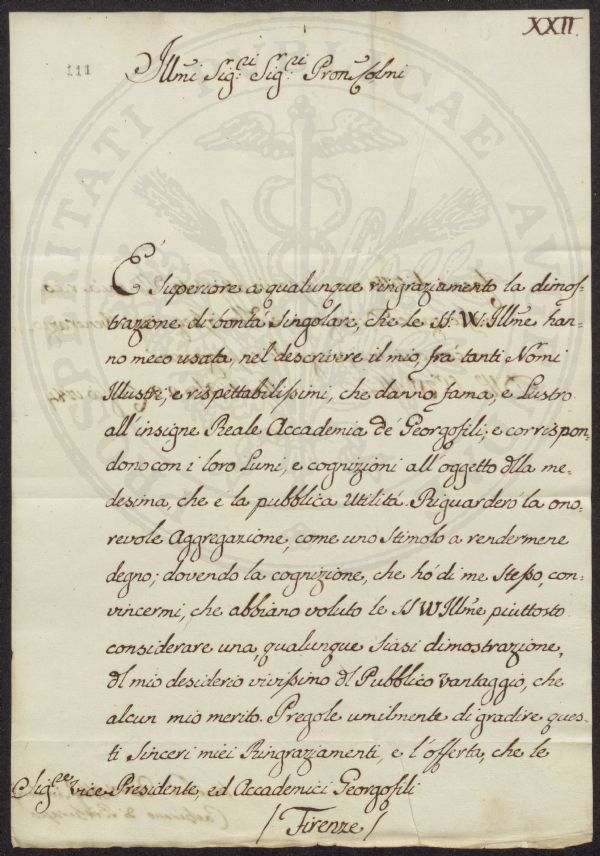 XXII.
111
Illmi Sigri Sigri Proni Colmi
È Superiore a qualunque ringraziamento la dimos=
trazione di bontà Singolare, che le SS. VV. Illme han=
no meco usata, nel descrivere il mio frà tanti Nomi
Illustri, e rispettabilissimi, che danno fama, e Lustro
all'insigne Reale Accademia de' Georgofili, e corrispon=
dono con i loro Lumi, e cognizioni all'oggetto dlla me=
desima, che e la pubblica Utilità. Riguarderò la ono=
revole Aggregazione, come uno Stimolo a rendermene
degno; dovendo la cognizione, che hò di me Stesso, con=
vincermi, che abbiano voluto le SS VV Illme piuttosto
considerare una, qualunque siasi dimostrazione,
dl mio desiderio vivissimo dl Pubblico vantaggio, che
alcun mio merito. Pregole umilmente di gradire ques=
ti Sinceri miei Ringraziamenti, e l'offerta, che le
Sigre Vice Presidente, ed Accademici Georgofili
/ Firenze /
PROSPERITATI PUBLICAE AU